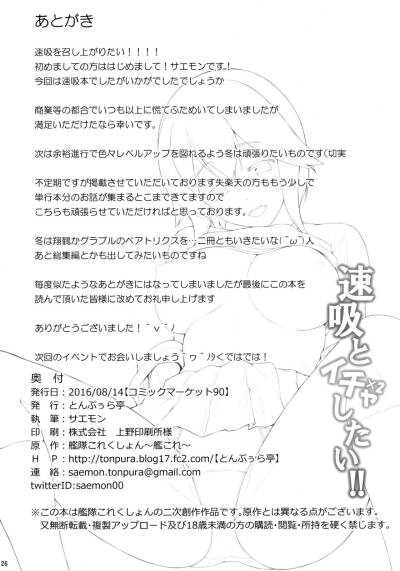 あとがき
速吸を召し上がりたい！！！！
初めましての方ははじめまして！サエモンです！
今回は速吸本でしたがいかがでしたでしょうか
商業等の都合でいつも以上に慌てふためいてしまいましたが
満足いただけたなら幸いです。
次は余裕進行で色々レベルアップを図れるよう冬は頑張りたいものです（切実
不定期ですが掲載させていただいております失楽天の方ももう少しで
単行本分のお話が集まるとこまできてますので
こちらも頑張らせていただければと思っております。
冬は翔鶴かグラブルのベアトリクスを…二冊ともいきたいな(˘ω˘)人
あと総集編とかも出してみたいものですね
毎度似たようなあとがきにはなってしまいましたが最後にこの本を
読んで頂いた皆様に改めてお礼申し上げます
ありがとうございました！＾ｖ＾ノ
次回のイベントでお会いしましょう＾ｗ＾ノｼくではでは！
速吸とイチャ×2したい!!
奥　付
発行日：2016/08/14【コミックマーケット90】
発　行：とんぷぅら亭
執　筆：サエモン
印　刷：株式会社　上野印刷所様
原　作：艦隊これくしょん～艦これ～
Ｈ　Ｐ：http://tonpura.blog17.fc2.com/【とんぷぅら亭】
連　絡：saemon.tonpura@gmail.com
twitterID:saemon00
※この本は艦隊これくしょんの二次創作作品です。原作とは異なる点がございます。
又無断転載・複製アップロード及び18歳未満の方の購読・閲覧・所持を硬く禁じます。
26